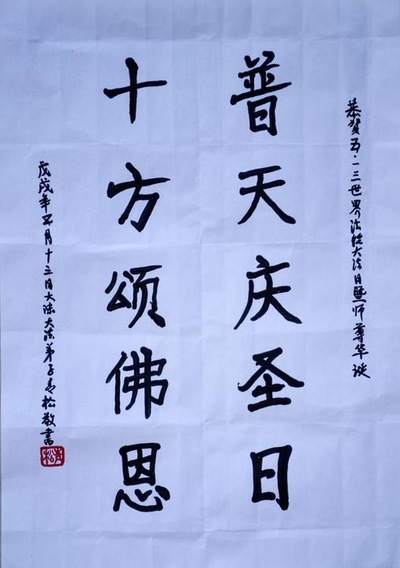 恭賀五·一三世界法轮大法日暨师尊华诞
普天庆圣日
十方颂佛恩
戊戌年五月十三日大陆大法弟子青松敬書